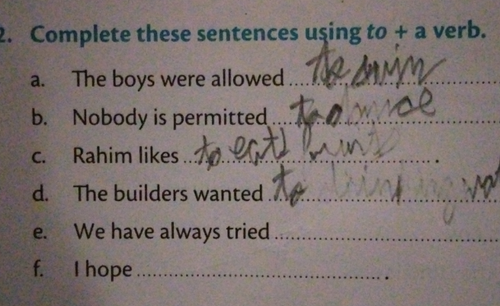 2. Complete these sentences using to + a verb.
a. The boys were allowed to swim
b. Nobody is permitted
c. Rahim likes to eat
d. The builders wanted to
e. We have always tried
f. I hope